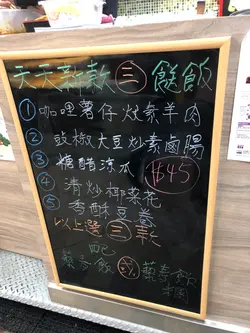 天天新款 三 餸飯
① 咖哩薯仔炆素羊肉
② 豉椒大豆炒素鹵腸
③ 糖醋涼水 $45
④ 清炒椰菜花
⑤ 香酥豆卷
以上選三款
配
飯